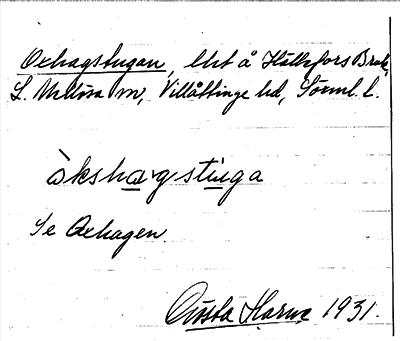 Oxhagstugan, lht å Hällefors Bruk,
L. Mellösa sn, Villåttinge hd, Sörml. l.
òkshagstùga
Se Oxhagen.
Gösta Harne 1931.